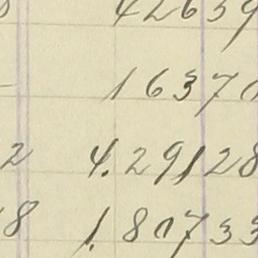 42639
1637
2 4.29128
8 1.80733